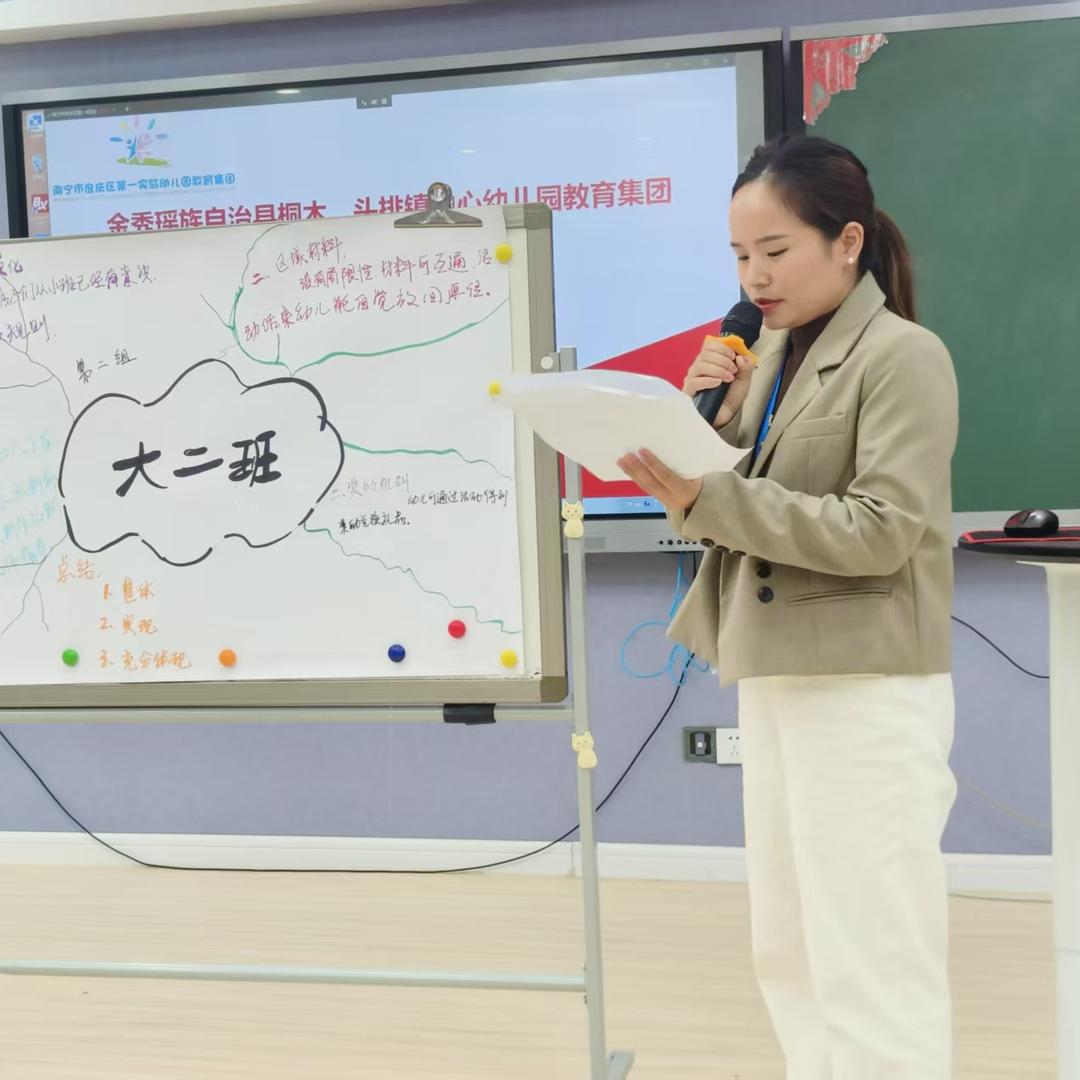 南宁市良庆区第一实验幼儿园教育集团
金秀瑶族自治县桐木、头排镇中心幼儿园教育集团
们从小班已经有意识.
规则.
第二组
二、区域材料,
没有局限性.材料可互通,活
动结束幼儿能自觉放回原位。
大二班
三、奖励机制
幼儿可通过活动得到
奖励兑换礼品。
总结:
1. 整体
2. 实现
3. 充分体现